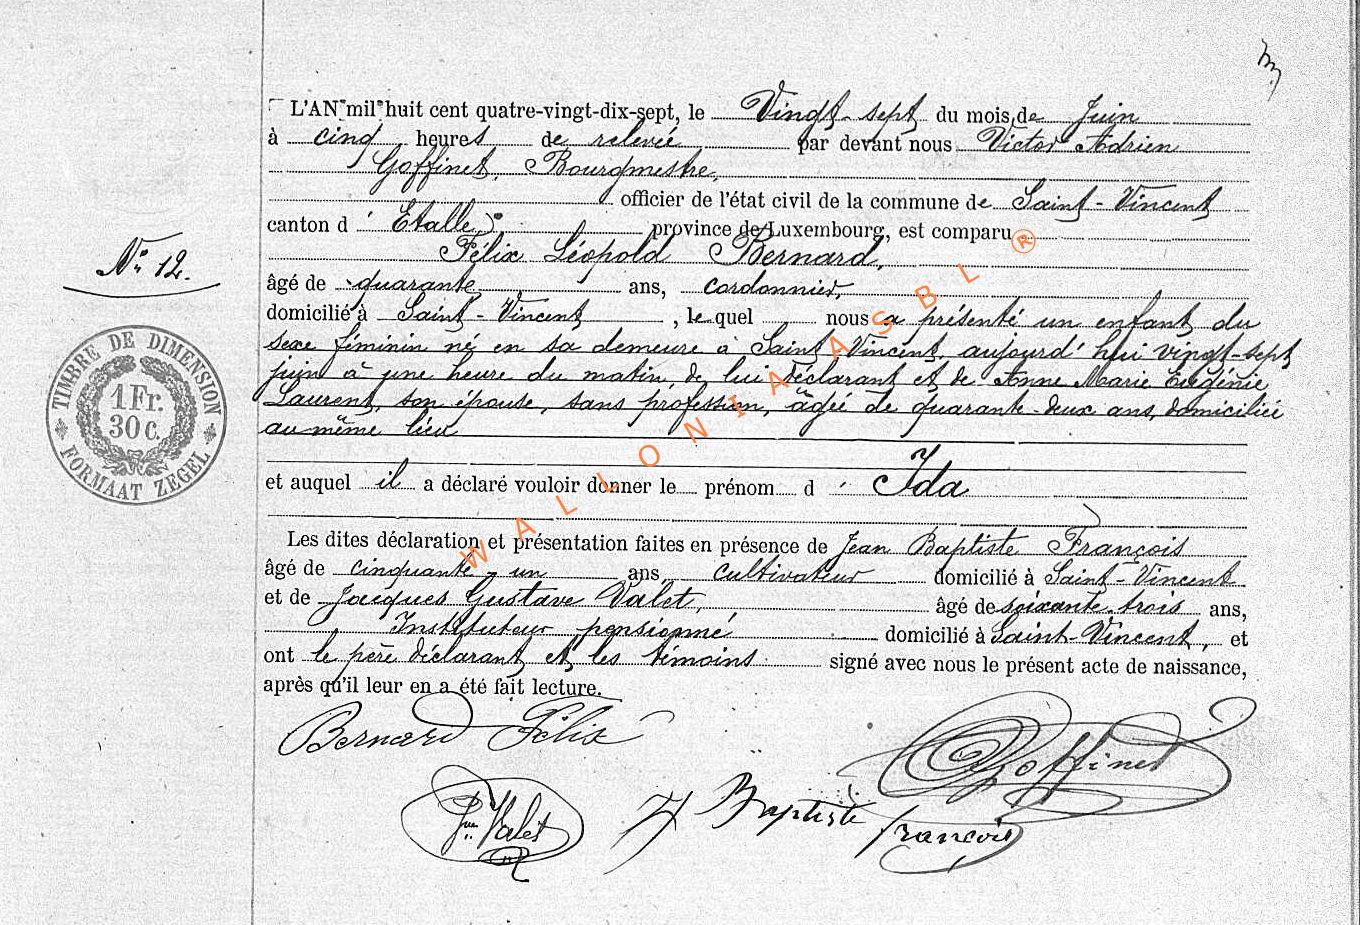 L'AN mil huit cent quatre-vingt-dix-sept, le Vingt-sept du mois de Juin
à cinq heures de relevée par devant nous Victor Adrien
Goffinet, Bourgmestre,
officier de l'état civil de la commune de Saint-Vincent
canton d' Etalle, province de Luxembourg, est comparu
Félix Léopold Bernard,
âgé de quarante ans, cordonnier,
domicilié à Saint-Vincent, lequel nous a présenté un enfant du
sexe féminin né en sa demeure à Saint-Vincent, aujourd'hui vingt-sept
juin à une heure du matin, de lui déclarant et de Anne Marie Eugénie
Laurent, son épouse, sans profession, âgée de quarante-deux ans, domiciliée
au même lieu
et auquel il a déclaré vouloir donner le prénom d' Ida
Les dites déclaration et présentation faites en présence de Jean Baptiste François
âgé de cinquante-un ans, cultivateur domicilié à Saint-Vincent
et de Jacques Gustave Valet, âgé de soixante-trois ans,
Instituteur pensionné domicilié à Saint-Vincent, et
ont le père déclarant et les témoins signé avec nous le présent acte de naissance,
après qu'il leur en a été fait lecture.
Bernard Félix
Goffinet
Valet
Baptiste françois
No 12.
TIMBRE DE DIMENSION
1 Fr.
30 C.
FORMAAT ZEGEL
WALLONIA ASBL ®